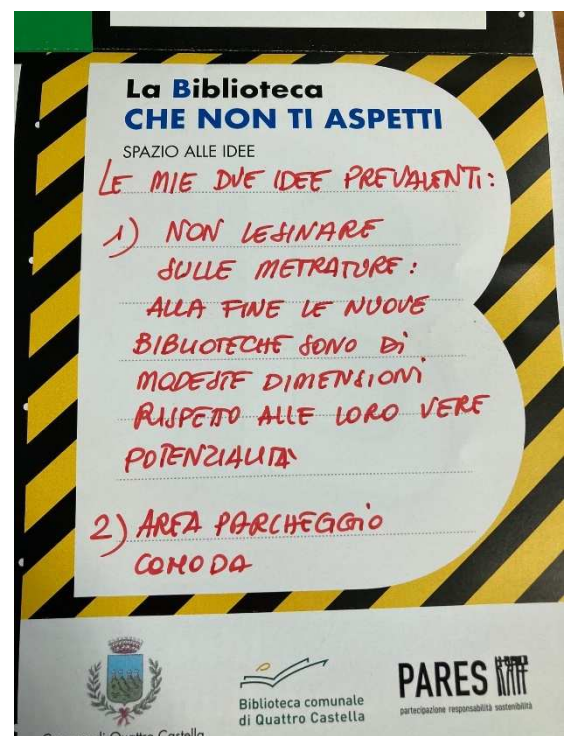 La Biblioteca
CHE NON TI ASPETTI
SPAZIO ALLE IDEE
LE MIE DUE IDEE PREVALENTI:
1) NON LESINARE
SULLE METRATURE:
ALLA FINE LE NUOVE
BIBLIOTECHE SONO DI
MODESTE DIMENSIONI
RISPETTO ALLE LORO VERE
POTENZIALITÀ
2) AREA PARCHEGGIO
COMODA
Biblioteca comunale
di Quattro Castella
PARES
partecipazione responsabilità sostenibilità
Quattro Castella